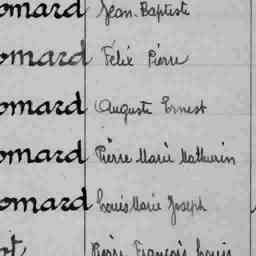 omard Jean-Baptiste
omard Félix Pierre
omard Auguste Ernest
omard Pierre Marie Mathurin
omard Louis Marie Joseph
ot Pierre François Louis